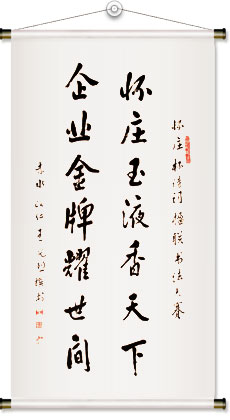 怀庄杯诗词楹联书法大赛
怀庄玉液香天下
企业金牌耀世间